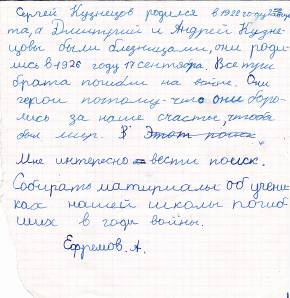 Сергей Кузнецов родился в 1922 году 22 мар
та, а Дмитрий и Андрей Кузне-
цовы были близнецами, они роди-
лись в 1926 году 17 сентября. Все три
брата погибли на войне. Они
герои потому-что они боро-
лись за наше счастье, чтобы
был мир. В Этот поиск
Мне интересно вести поиск.
Собирать материалы об учени-
ках нашей школы погиб-
ших в годы войны.
Ефремов. А.